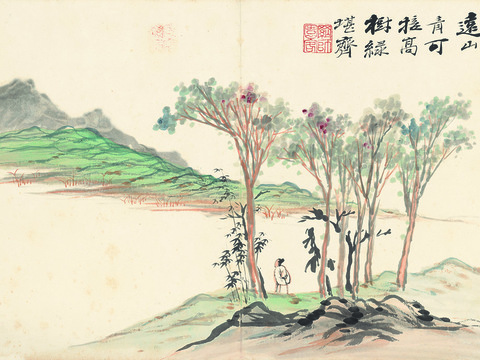 遠山
青可
高
樹綠
堪齊